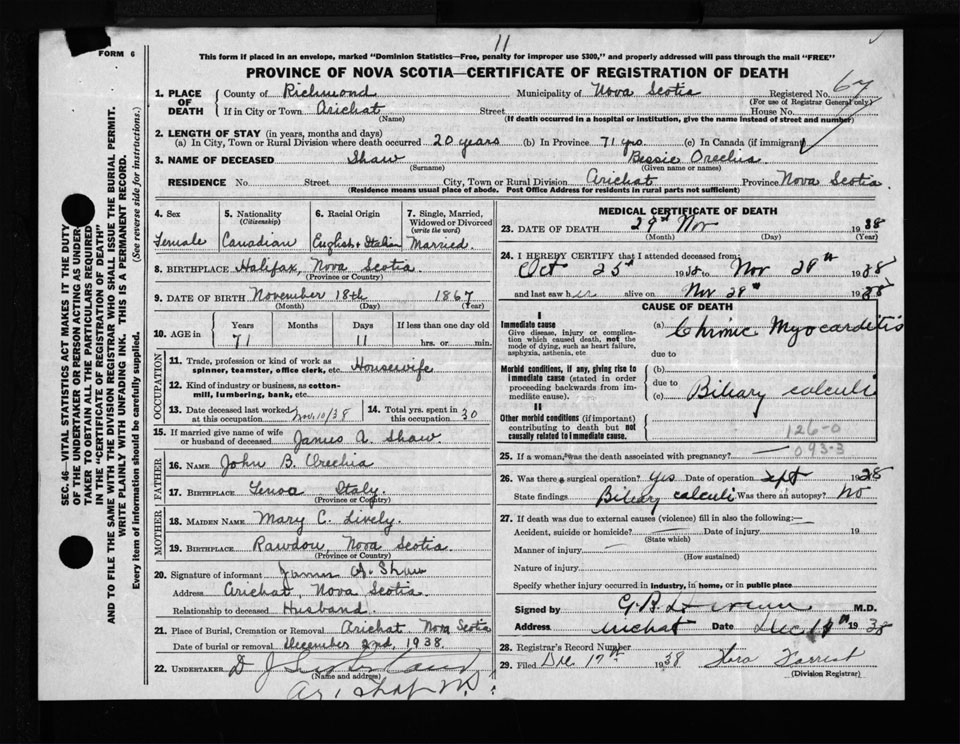 11
FORM 6
This form if placed in an envelope, marked "Dominion Statistics—Free, penalty for improper use $300," and properly addressed will pass through the mail "FREE"
PROVINCE OF NOVA SCOTIA—CERTIFICATE OF REGISTRATION OF DEATH
SEC. 46—VITAL STATISTICS ACT MAKES IT THE DUTY
OF THE UNDERTAKER OR PERSON ACTING AS UNDER-
TAKER TO OBTAIN ALL THE PARTICULARS REQUIRED
IN THE "CERTIFICATE OF REGISTRATION OF DEATH"
AND TO FILE THE SAME WITH THE DIVISION REGISTRAR WHO SHALL ISSUE THE BURIAL PERMIT.
WRITE PLAINLY WITH UNFADING INK. THIS IS A PERMANENT RECORD.
Every item of information should be carefully supplied. (See reverse side for instructions.)
1. PLACE OF DEATH County of Richmond Municipality of Nova Scotia Registered No. 67
(For use of Registrar General only)
If in City or Town Arichat Street House No.
(Name) (If death occurred in a hospital or institution, give the name instead of street and number)
2. LENGTH OF STAY (in years, months and days)
(a) In City, Town or Rural Division where death occurred 20 years (b) In Province 71 yrs. (c) In Canada (if immigrant)
3. NAME OF DECEASED Shaw Bessie Orechia
(Surname) (Given name or names)
RESIDENCE No. Street City, Town or Rural Division Arichat Province Nova Scotia
(Residence means usual place of abode. Post Office Address for residents in rural parts not sufficient)
4. Sex 5. Nationality (Citizenship) 6. Racial Origin 7. Single, Married, Widowed or Divorced (write the word)
Female Canadian English & Italian Married
8. BIRTHPLACE Halifax, Nova Scotia
(Province or Country)
9. DATE OF BIRTH November 18th 1867
(Month) (Day) (Year)
10. AGE in Years Months Days If less than one day old
71 11 hrs. or min.
OCCUPATION
11. Trade, profession or kind of work as
spinner, teamster, office clerk, etc. Housewife
12. Kind of industry or business, as cotton-
mill, lumbering, bank, etc.
13. Date deceased last worked at this occupation Nov, 10/38 14. Total yrs. spent in this occupation 30
15. If married give name of wife
or husband of deceased James A. Shaw
FATHER
16. NAME John B. Orechia
17. BIRTHPLACE Genoa Italy
(Province or Country)
MOTHER
18. MAIDEN NAME Mary C. Lively.
19. BIRTHPLACE Rawdon, Nova Scotia
(Province or Country)
20. Signature of informant James A. Shaw
Address Arichat, Nova Scotia.
Relationship to deceased Husband.
21. Place of Burial, Cremation or Removal Arichat Nova Scotia
Date of burial or removal December 2nd, 1938.
22. UNDERTAKER D J
(Name and address)
MEDICAL CERTIFICATE OF DEATH
23. DATE OF DEATH 29th Nov 1938
(Month) (Day) (Year)
24. I HEREBY CERTIFY that I attended deceased from:
Oct 25th 1938 to Nov 29th 1938
and last saw her alive on Nov 29th 1938
CAUSE OF DEATH
I
Immediate cause
Give disease, injury or complica-
tion which caused death, not the
mode of dying, such as heart failure,
asphyxia, asthenia, etc
(a) Chronic Myocarditis
due to
Morbid conditions, if any, giving rise to
immediate cause (stated in order
proceeding backwards from im-
mediate cause).
(b)
due to
(c) Biliary calculi
II
Other morbid conditions (if important)
contributing to death but not
causally related to immediate cause.
126-0
093-3
25. If a woman, was the death associated with pregnancy?
26. Was there a surgical operation? Yes Date of operation Sept 1938
State findings Biliary calculi Was there an autopsy? No
27. If death was due to external causes (violence) fill in also the following:—
Accident, suicide or homicide? Date of injury 19
(State which)
Manner of injury
(How sustained)
Nature of injury
Specify whether injury occurred in industry, in home, or in public place
Signed by G.B. M.D.
Address Arichat Date Dec 17th 1938
28. Registrar's Record Number
29. Filed Dec 17th 1938 Flora Forrest
(Division Registrar)